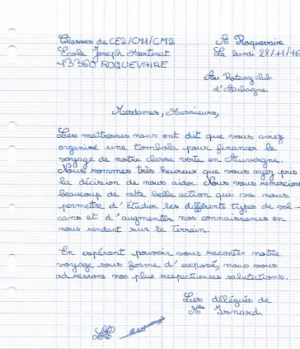 Classes de CE2/CM1/CM2
École Joseph Martinat
13360 ROQUEVAIRE
A Roquevaire
Le lundi 28/11/16
Au Rotary club
d'Aubagne
Mesdames, Messieurs,
Les maîtresses nous ont dit que vous avez
organisé une tombola pour financer le
voyage de notre classe verte en Auvergne.
Nous sommes très heureux que vous ayez pris
la décision de nous aider. Nous vous remercions
beaucoup de cette belle action qui va nous
permettre d'étudier les différents types de vol-
cans et d'augmenter nos connaissances en
nous rendant sur le terrain.
En espérant pouvoir vous raconter notre
voyage sous forme d'exposé, nous vous
adressons nos plus respectueuses salutations.
Les délégués de
Isnard